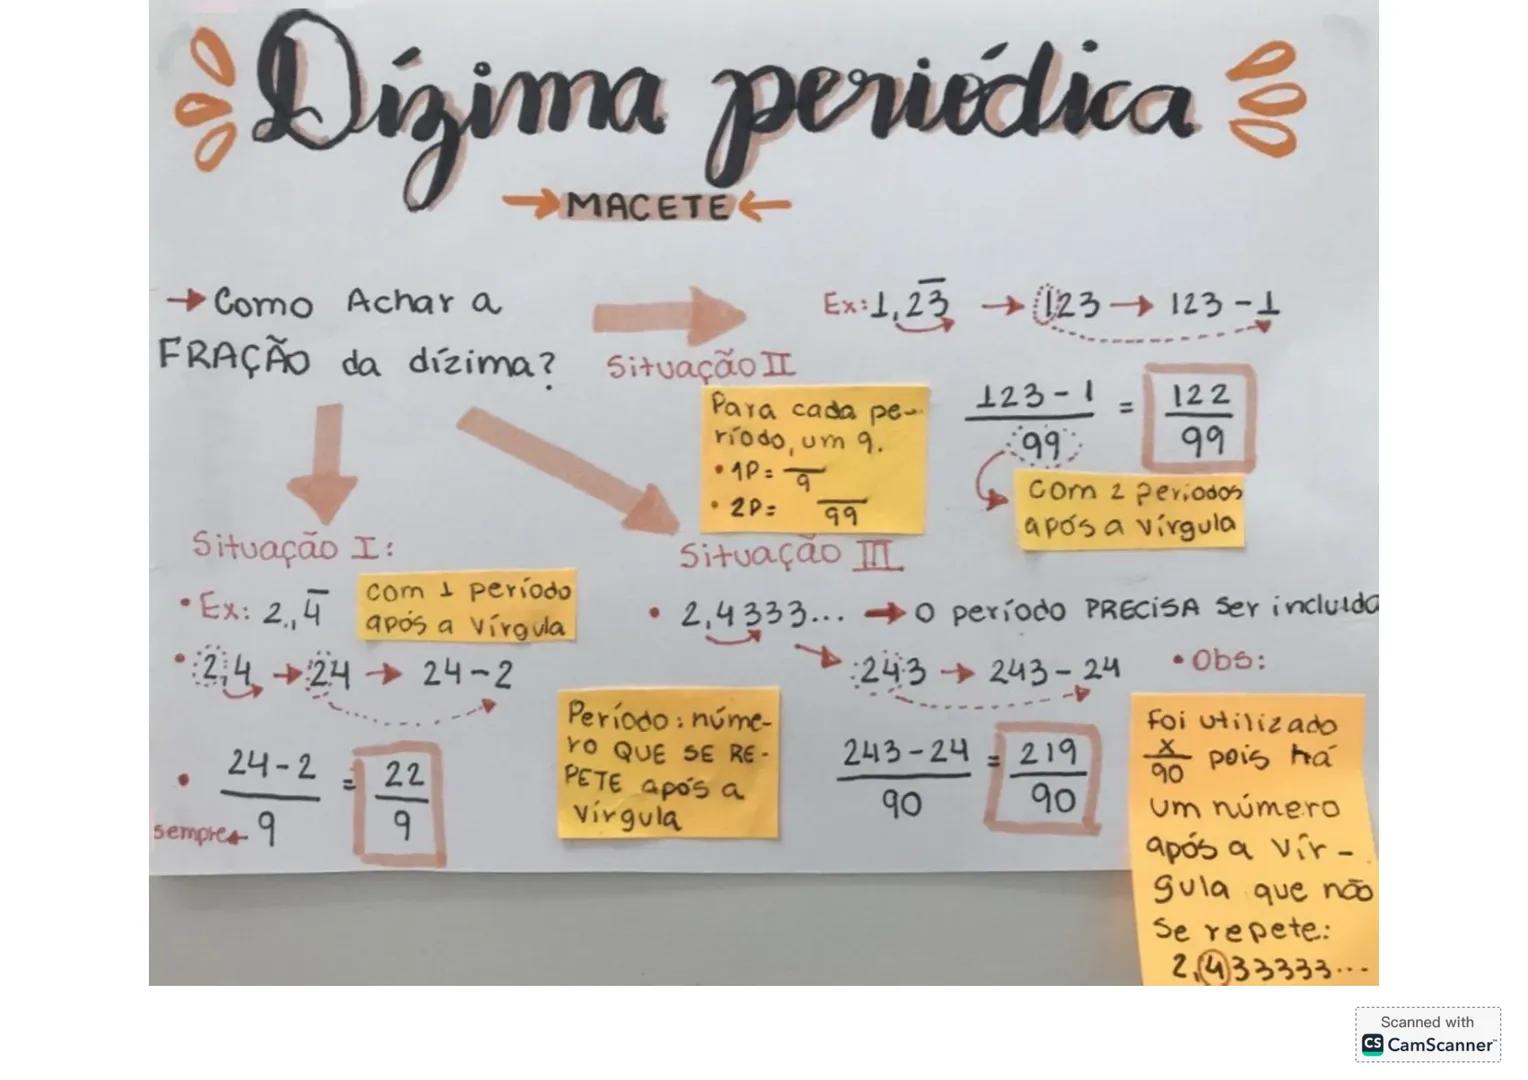 Dízima periódica
→ MACETE ←
→ Como Achar a
FRAÇÃO da dízima?
Situação II
Ex: 1,2̅3̅ → 123 → 123 - 1
Para cada pe-
ríodo, um 9.
• 1P = —/9
• 2P = —/99
123 - 1 / 99 = 122 / 99
com 2 períodos
após a vírgula
Situação I:
• Ex: 2,4̅
com 1 período
após a vírgula
• 2,4 → 24 → 24 - 2
• 24 - 2 / 9 = 22 / 9
sempre ←
Período: núme-
ro QUE SE RE-
PETE após a
vírgula
Situação III
• 2,4333... → O período PRECISA ser incluído
243 → 243 - 24
243 - 24 / 90 = 219 / 90
• Obs:
Foi utilizado
x/90 pois há
um número
após a vír-
gula que não
se repete:
2,433333...
Scanned with
CS CamScanner™